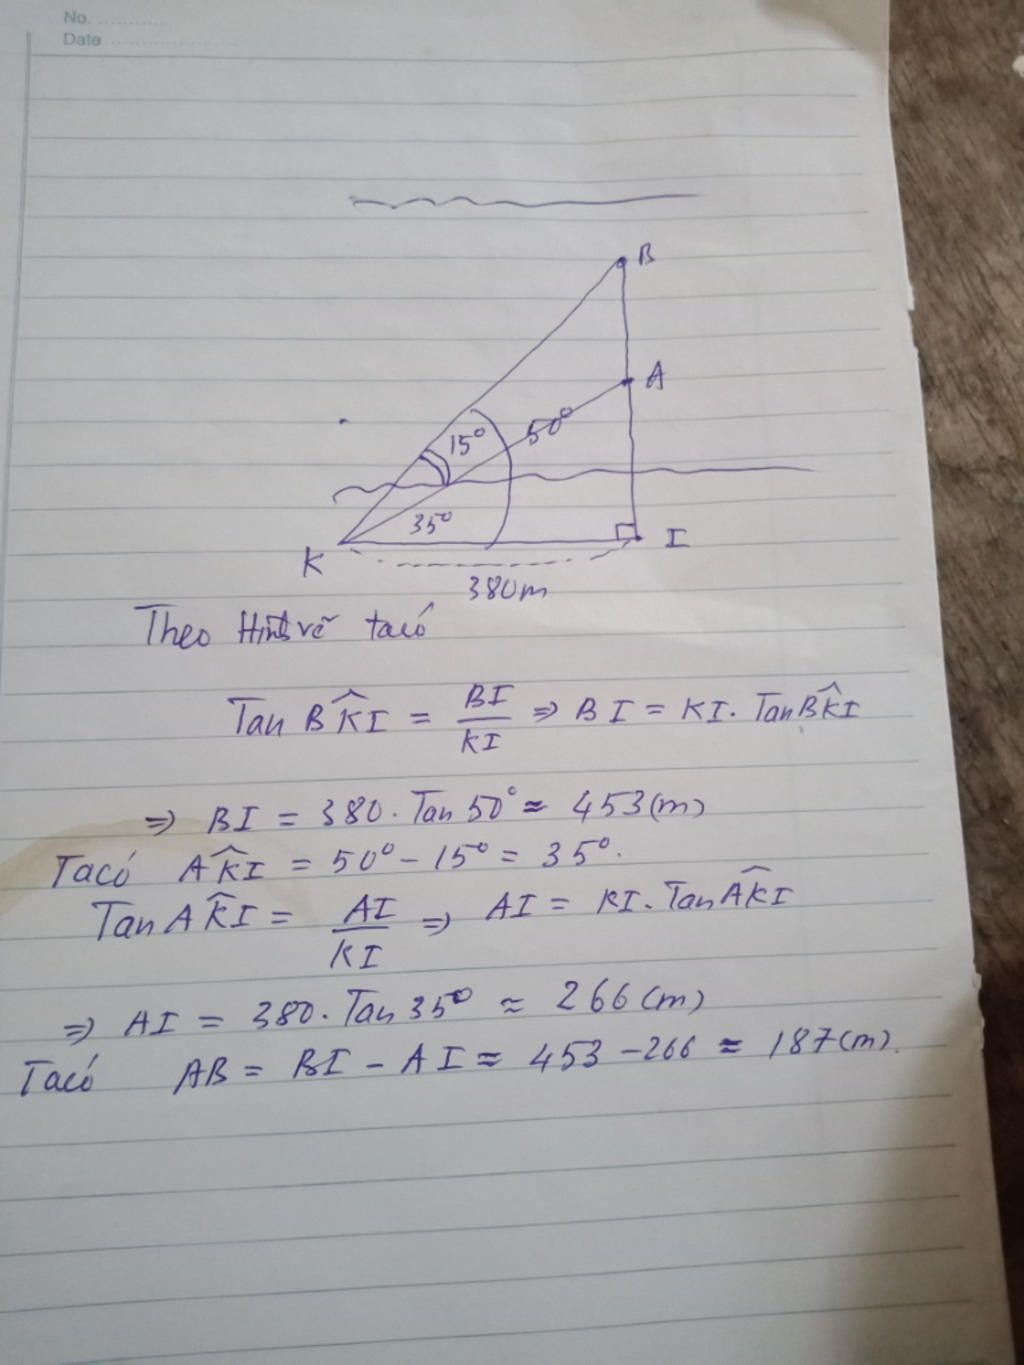 No. ............
Date ............
B
A
50°
15°
35°
K
I
380m
Theo Hình vẽ ta có
Tan BK̂I = BI/KI ⇒ BI = KI. Tan BK̂I
⇒ BI = 380. Tan 50° ≈ 453(m)
Ta có AK̂I = 50° - 15° = 35°.
Tan AK̂I = AI/KI ⇒ AI = KI. Tan AK̂I
⇒ AI = 380. Tan 35° ≈ 266(m)
Ta có AB = BI - AI ≈ 453 - 266 ≈ 187(m).